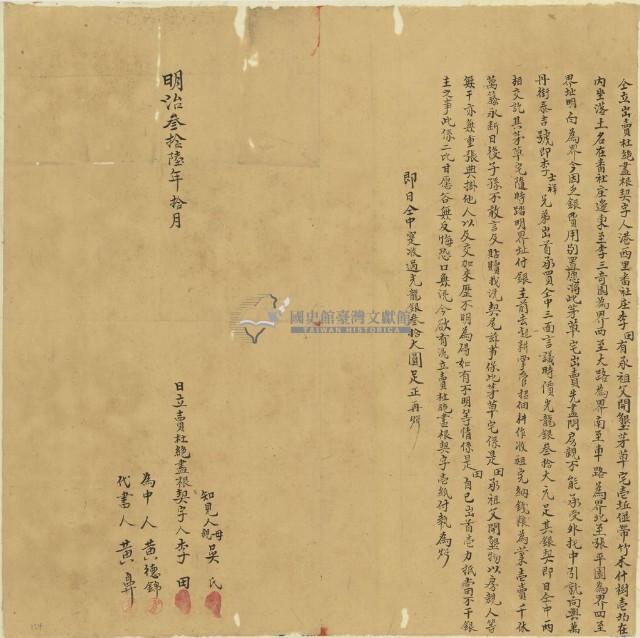 仝立出賣杜絕盡根契字人港西里番社庄李田有承祖父開墾茅草宅壹坵並帶竹木什樹壹均在
內坐落土名在番社庄邊東至李三奇園為界西至大路為界南至車路為界北至張平園為界四至
界址明白為界今因乏銀費用別置愿將此茅草宅出賣先盡問房親不能承受外托中引就向與萬
丹街泰吉號即李士祥兄弟出首承買仝中三面言議時價光龍銀叁拾大元足其銀契即日仝中兩
相交訖其茅草宅隨時踏明界址付銀主前去起耕掌管招佃耕作收租完納錢糧為業壹賣千休
萬藤永斷日後子孫不敢言及貼贖找洗契尾滋事保此茅草宅係是田承祖父開墾物以房親人等
無干亦無重張典掛他人以及交加來歷不明為碍如有不明等情係是田自已出首壹力抵當不干銀
主之事此係二比甘愿各無反悔恐口無憑今欲有憑立賣杜絕盡根契字壹紙付執為炤
即日仝中寔收過光龍銀叁拾大圓足正再炤
國史館臺灣文獻館
TAIWAN HISTORICA
知見人母親吳氏
日立賣杜絕盡根契字人李田
為中人黃德錦
代書人黃
明治叁拾陸年拾月